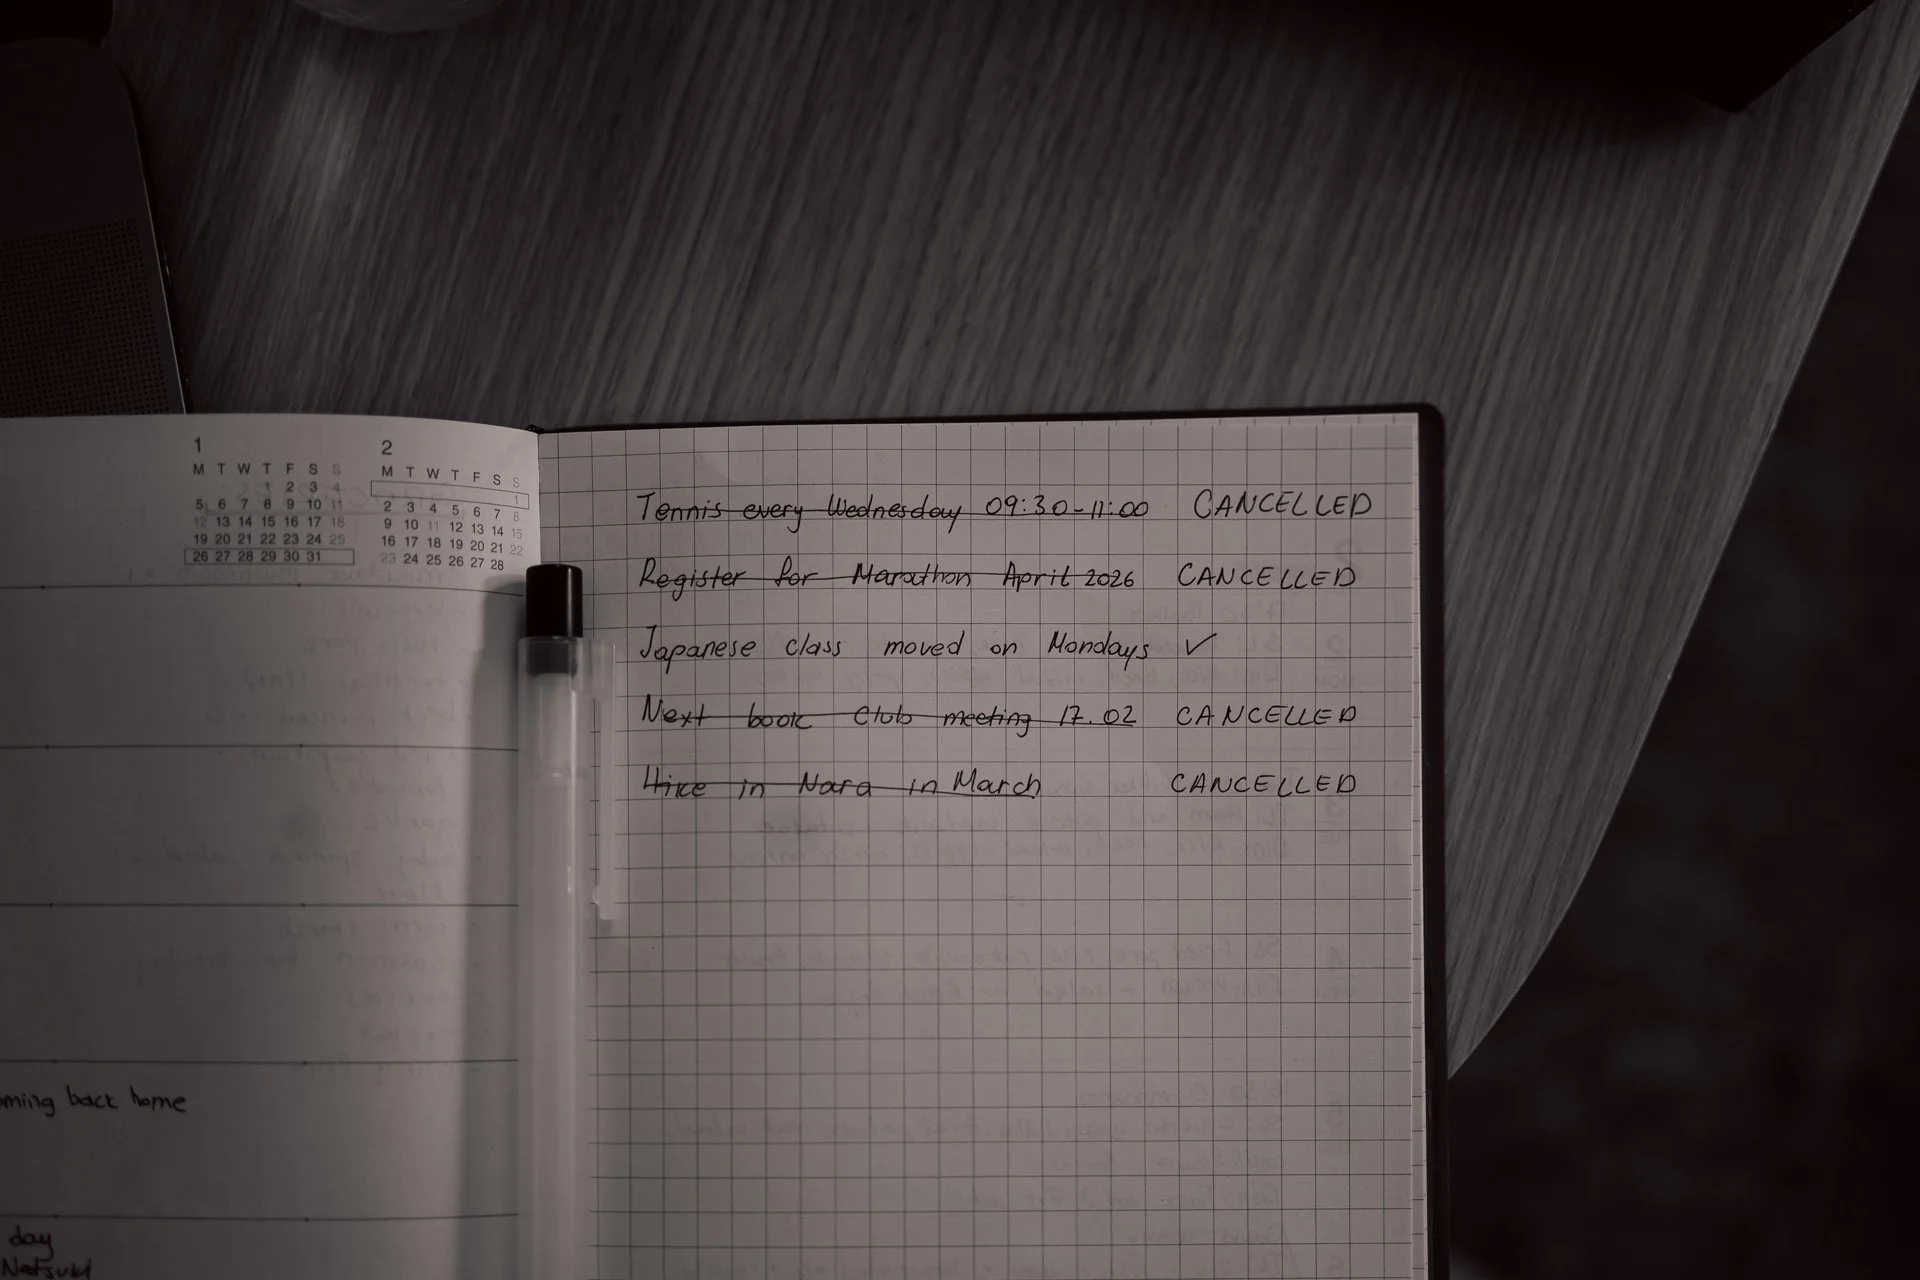 1
M T W T F S S
1 2 3 4
5 6 7 8 9 10 11
12 13 14 15 16 17 18
19 20 21 22 23 24 25
26 27 28 29 30 31
2
M T W T F S S
1
2 3 4 5 6 7 8
9 10 11 12 13 14 15
16 17 18 19 20 21 22
23 24 25 26 27 28
oming back home
day
Natsuki
Tennis every Wednesday 09:30-11:00 CANCELLED
Register for Marathon April 2026 CANCELLED
Japanese class moved on Mondays ✓
Next book club meeting 17.02 CANCELLED
Hike in Nara in March CANCELLED